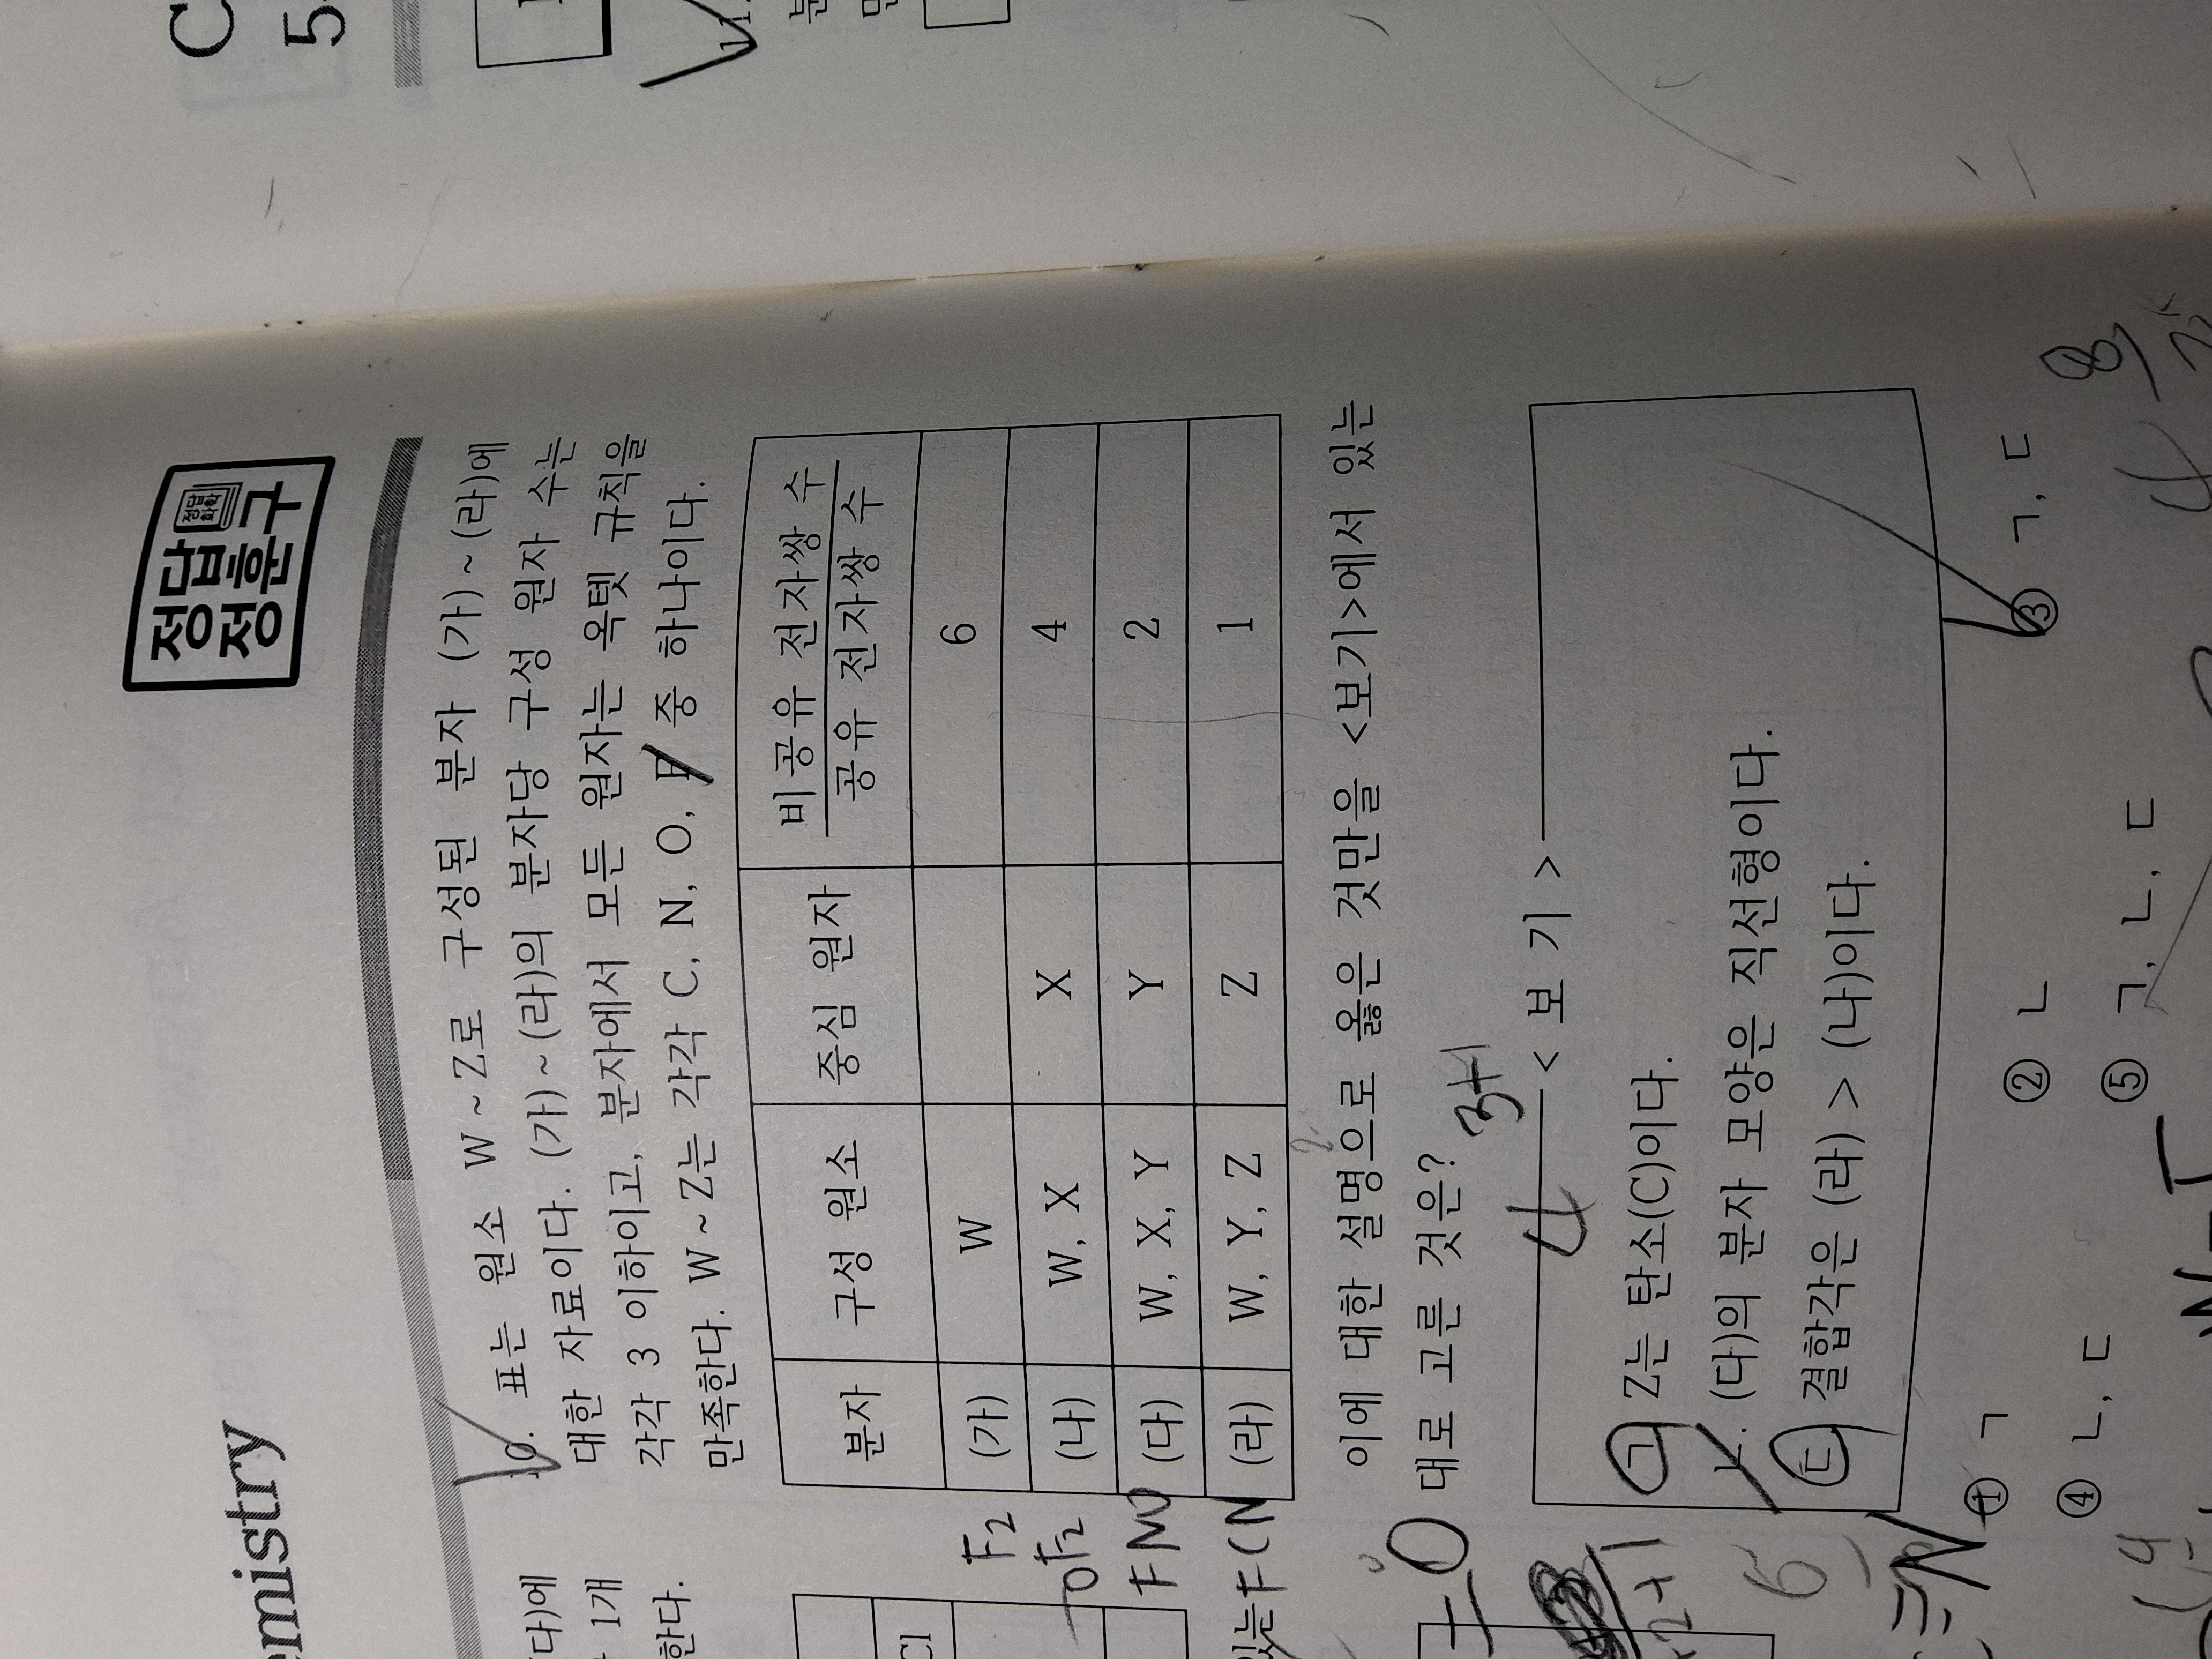 emistry
정답
정훈구
10. 표는 원소 W ~ Z로 구성된 분자 (가) ~ (라)에
대한 자료이다. (가) ~ (라)의 분자당 구성 원자 수는
각각 3 이하이고, 분자에서 모든 원자는 옥텟 규칙을
만족한다. W ~ Z는 각각 C, N, O, F 중 하나이다.
분자 구성 원소 중심 원자 비공유 전자쌍 수 / 공유 전자쌍 수
(가) W 6
(나) W, X X 4
(다) W, X, Y Y 2
(라) W, Y, Z Z 1
F2
OF2
FNO
FCN
이에 대한 설명으로 옳은 것만을 <보기>에서 있는
대로 고른 것은?
3+1
4
< 보 기 >
ㄱ. Z는 탄소(C)이다.
ㄴ. (다)의 분자 모양은 직선형이다.
ㄷ. 결합각은 (라) > (나)이다.
① ㄱ ② ㄴ ③ ㄱ, ㄷ
④ ㄴ, ㄷ ⑤ ㄱ, ㄴ, ㄷ
다)에
1개
한다.
Cl
있는
8
4
6
C
5